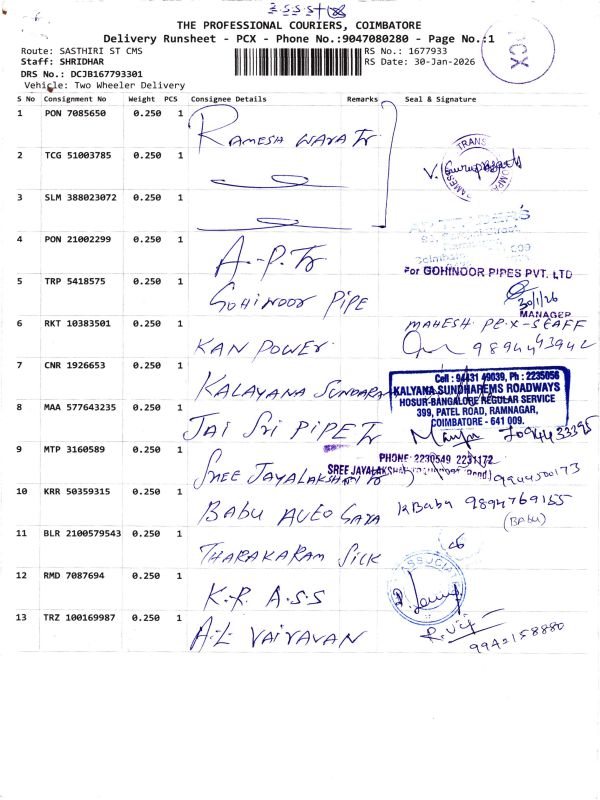 THE PROFESSIONAL COURIERS, COIMBATORE
Delivery Runsheet - PCX - Phone No.:9047080280 - Page No.:1
Route: SASTHIRI ST CMS
RS No.: 1677933
Staff: SHRIDHAR
RS Date: 30-Jan-2026
DRS No.: DCJB167793301
Vehicle: Two Wheeler Delivery
PCX
S No Consignment No Weight PCS Consignee Details Remarks Seal & Signature
1 PON 7085650 0.250 1 RAMESH
TRANS
2 TCG 51003785 0.250 1
3 SLM 388023072 0.250 1
4 PON 21002299 0.250 1 A.P.Tr
For GOHINOOR PIPES PVT. LTD
5 TRP 5418575 0.250 1 GOHINOOR PIPE
30/1/26
MANAGER
6 RKT 10383501 0.250 1 KAN POWER
MAHESH
7 CNR 1926653 0.250 1 KALAYANA SUNDARA
Cell : 94431 49039, Ph : 2235056
KALYANA SUNDHAREMS ROADWAYS
HOSUR-BANGALORE REGULAR SERVICE
399, PATEL ROAD, RAMNAGAR,
COIMBATORE - 641 009.
8 MAA 577643235 0.250 1 JAI Sri PIPE Tr
PHONE: 2230549 2231172
9 MTP 3160589 0.250 1 SREE JAYALAKSHMI Tr
9944500173
10 KRR 50359315 0.250 1 BABU AUTO
K Baby 9894769155
(BABU)
11 BLR 2100579543 0.250 1 THARAKARAM SILK
ASSOCIAT
12 RMD 7087694 0.250 1 K.R. A.S.S
13 TRZ 100169987 0.250 1 A.L VAIRAVAN
9942158880